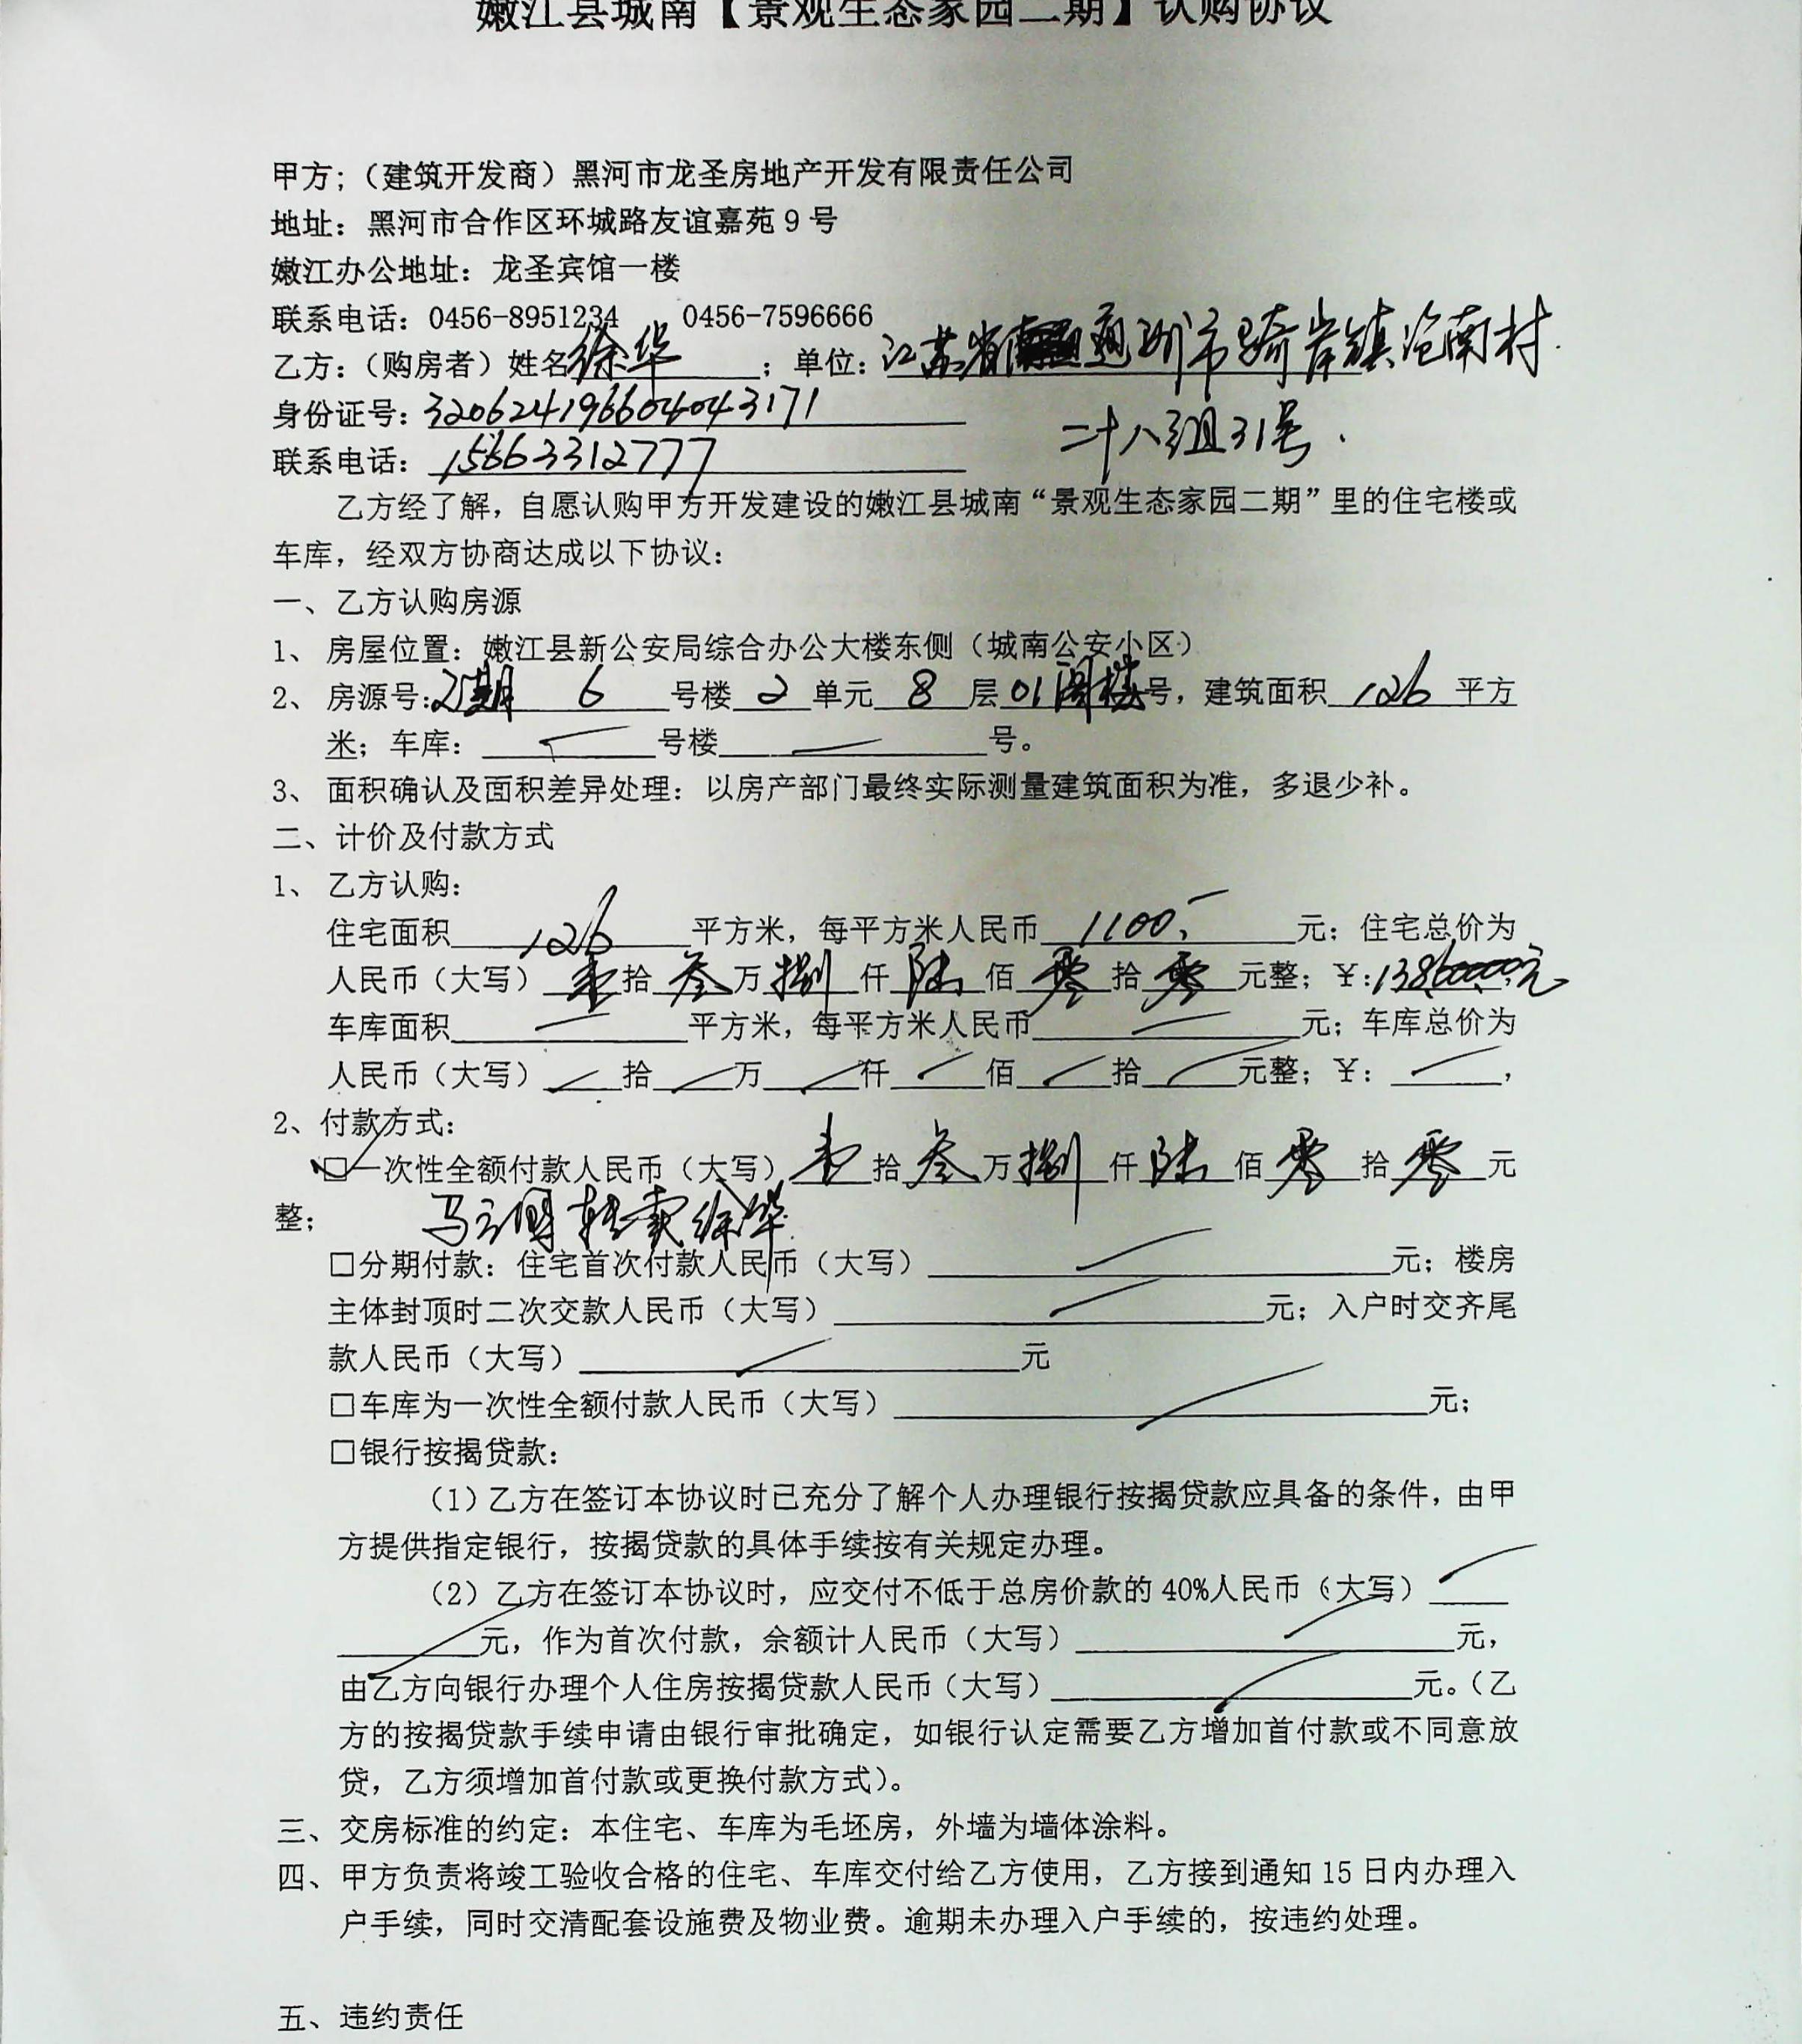 嫩江县城南【景观生态家园二期】认购协议
甲方;（建筑开发商）黑河市龙圣房地产开发有限责任公司
地址：黑河市合作区环城路友谊嘉苑 9 号
嫩江办公地址：龙圣宾馆一楼
联系电话：0456-8951234 0456-7596666
乙方：（购房者）姓名徐华；单位：江苏省通州市骑岸镇沧南村
身份证号：320624196604043171 二十八组31号.
联系电话：15663312777
乙方经了解，自愿认购甲方开发建设的嫩江县城南“景观生态家园二期”里的住宅楼或
车库，经双方协商达成以下协议：
一、乙方认购房源
1、 房屋位置：嫩江县新公安局综合办公大楼东侧（城南公安小区）
2、 房源号:2期 6 号楼 2 单元 8 层 01阁楼号，建筑面积 126 平方
米；车库：号楼号。
3、 面积确认及面积差异处理：以房产部门最终实际测量建筑面积为准，多退少补。
二、计价及付款方式
1、 乙方认购：
住宅面积 126 平方米，每平方米人民币 1100.- 元；住宅总价为
人民币（大写）壹拾叁万捌仟陆佰零拾零元整；￥:138600.00元
车库面积平方米，每平方米人民币元；车库总价为
人民币（大写）拾万仟佰拾元整；￥：，
2、付款方式：
☑一次性全额付款人民币（大写）壹拾叁万捌仟陆佰零拾零元
整； 转卖徐华
□分期付款：住宅首次付款人民币（大写）元；楼房
主体封顶时二次交款人民币（大写）元；入户时交齐尾
款人民币（大写）元
□车库为一次性全额付款人民币（大写）元；
□银行按揭贷款：
（1）乙方在签订本协议时已充分了解个人办理银行按揭贷款应具备的条件，由甲
方提供指定银行，按揭贷款的具体手续按有关规定办理。
（2）乙方在签订本协议时，应交付不低于总房价款的 40%人民币（大写）
元，作为首次付款，余额计人民币（大写）元，
由乙方向银行办理个人住房按揭贷款人民币（大写）元。（乙
方的按揭贷款手续申请由银行审批确定，如银行认定需要乙方增加首付款或不同意放
贷，乙方须增加首付款或更换付款方式）。
三、交房标准的约定：本住宅、车库为毛坯房，外墙为墙体涂料。
四、甲方负责将竣工验收合格的住宅、车库交付给乙方使用，乙方接到通知 15 日内办理入
户手续，同时交清配套设施费及物业费。逾期未办理入户手续的，按违约处理。
五、违约责任